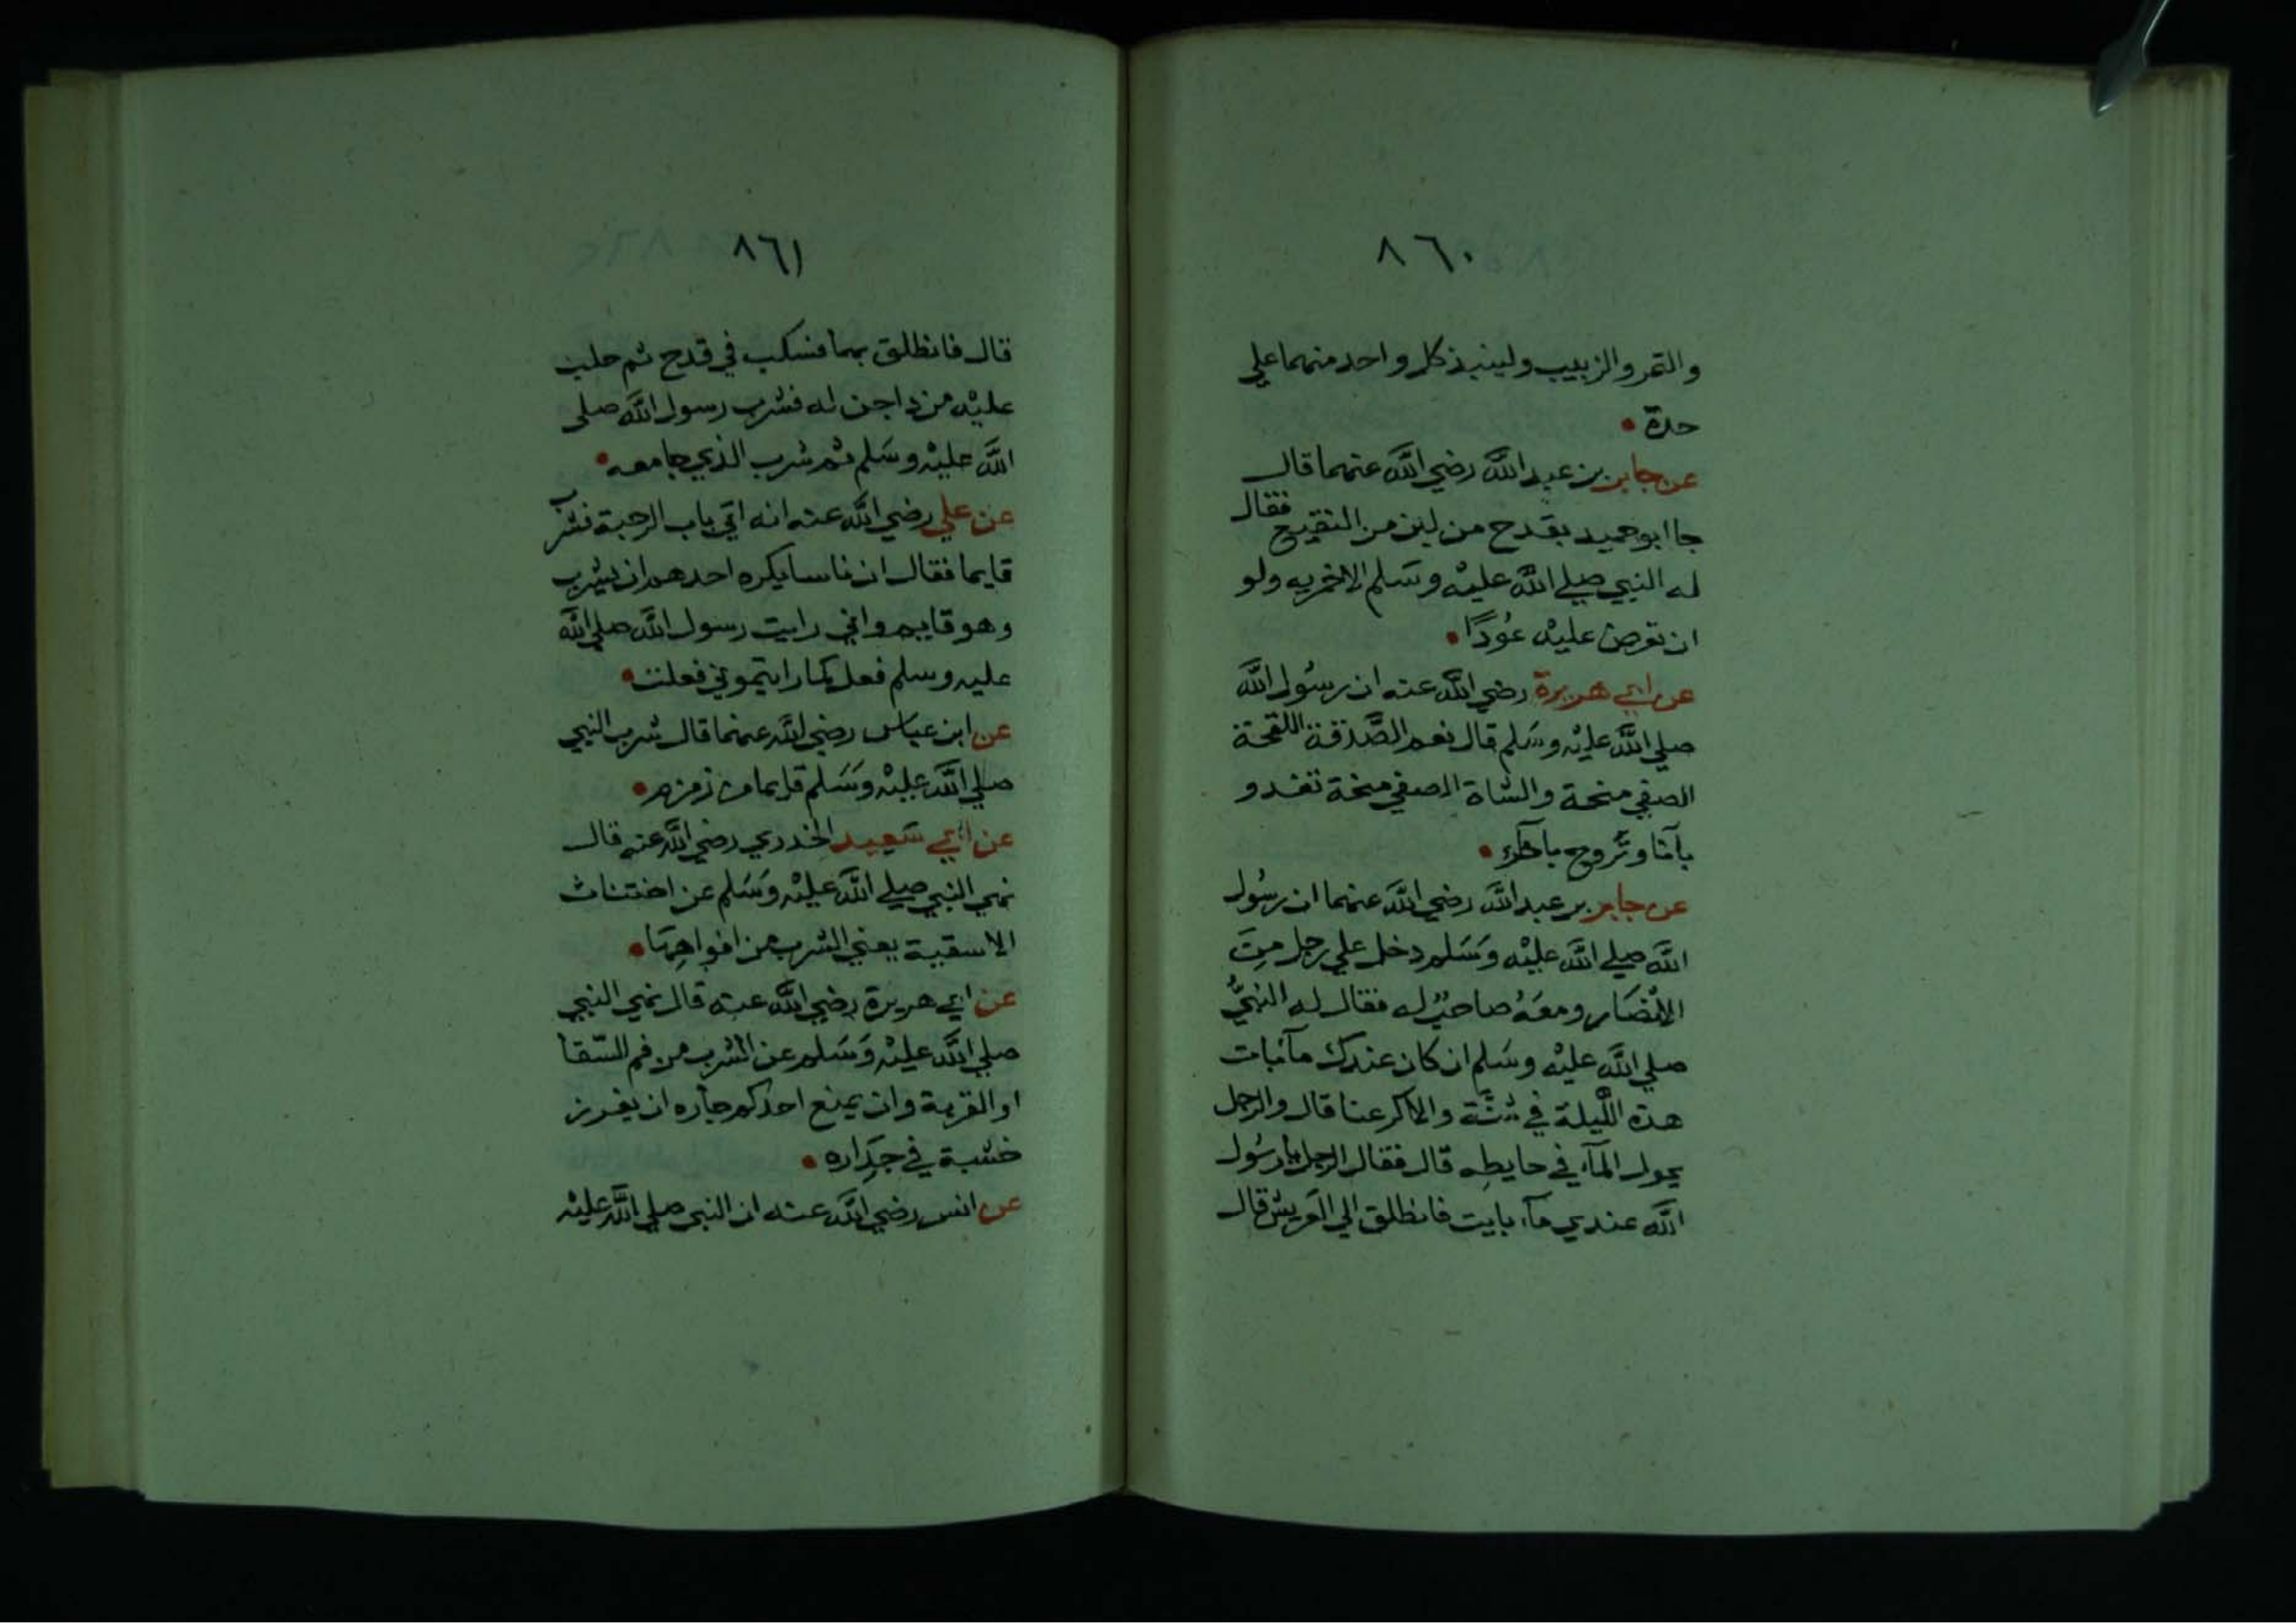 ٨٦٠
والتمر والزبيب ولينبذ كل واحد منهما علي
حدة
عن جابر بن عبد الله رضي الله عنهما قال
جا ابو حميد بقدح من لبن من النقيع فقال
له النبي صلي الله عليه وسلم الاخمرته ولو
ان تعرض عليه عُودًا
عن ابي هريرة رضي الله عنه ان رسُول الله
صلي الله عليه وسَلم قال نعم الصَّدقة اللقحة
الصفي منحة والشاة الصفي منحة تغدو
بآنا وتَروح بآخر
عن جابر بن عبد الله رضي الله عنهما ان رسُول
الله صلي الله عليْه وَسَلم دخل علي رجل مِنَ
الانْصَار ومعَهُ صاحبٌ له فقال له النبيُّ
صلي الله عليْه وسَلم ان كان عندك مآ بات
هذه اللَّيلة في شَنَّة والا كرعنا قال والرجل
يحول المآء في حايطِه قال فقال الرجل يا رسُول
الله عندي مآء بايت فانطلق الي العَريش قال
٨٦١
قال فانطلق بهما فسكب في قدح ثم حلب
عليْه من داجن له فشرب رسول الله صلى
الله عليْه وسَلم ثم شرب الذي جا معه
عن علي رضي الله عنه انه اتي باب الرحبة فشرب
قايما فقال ان ناسا يكره احدهم ان يشرب
وهو قايم واني رايت رسول الله صلي الله
عليه وسلم فعل كما رايتموني فعلت
عن ابن عباس رضي الله عنهما قال شرب النبي
صلي الله عليْه وَسَلم قايما من زمزم
عن ابي سَعيد الخدري رضي الله عنه قال
نهي النبي صلي الله عليْه وَسَلم عن اختناث
الاسقية يعني الشرب من افواهِهَا
عن ابي هريرة رضي الله عنه قال نهي النبي
صلي الله عليْه وَسَلم عن الشرب من فم السّقا
او القربة وان يمنع احدكم جاره ان يغرز
خشبة في جِدَاره
عن انس رضي الله عنه ان النبي صلي الله عليْه